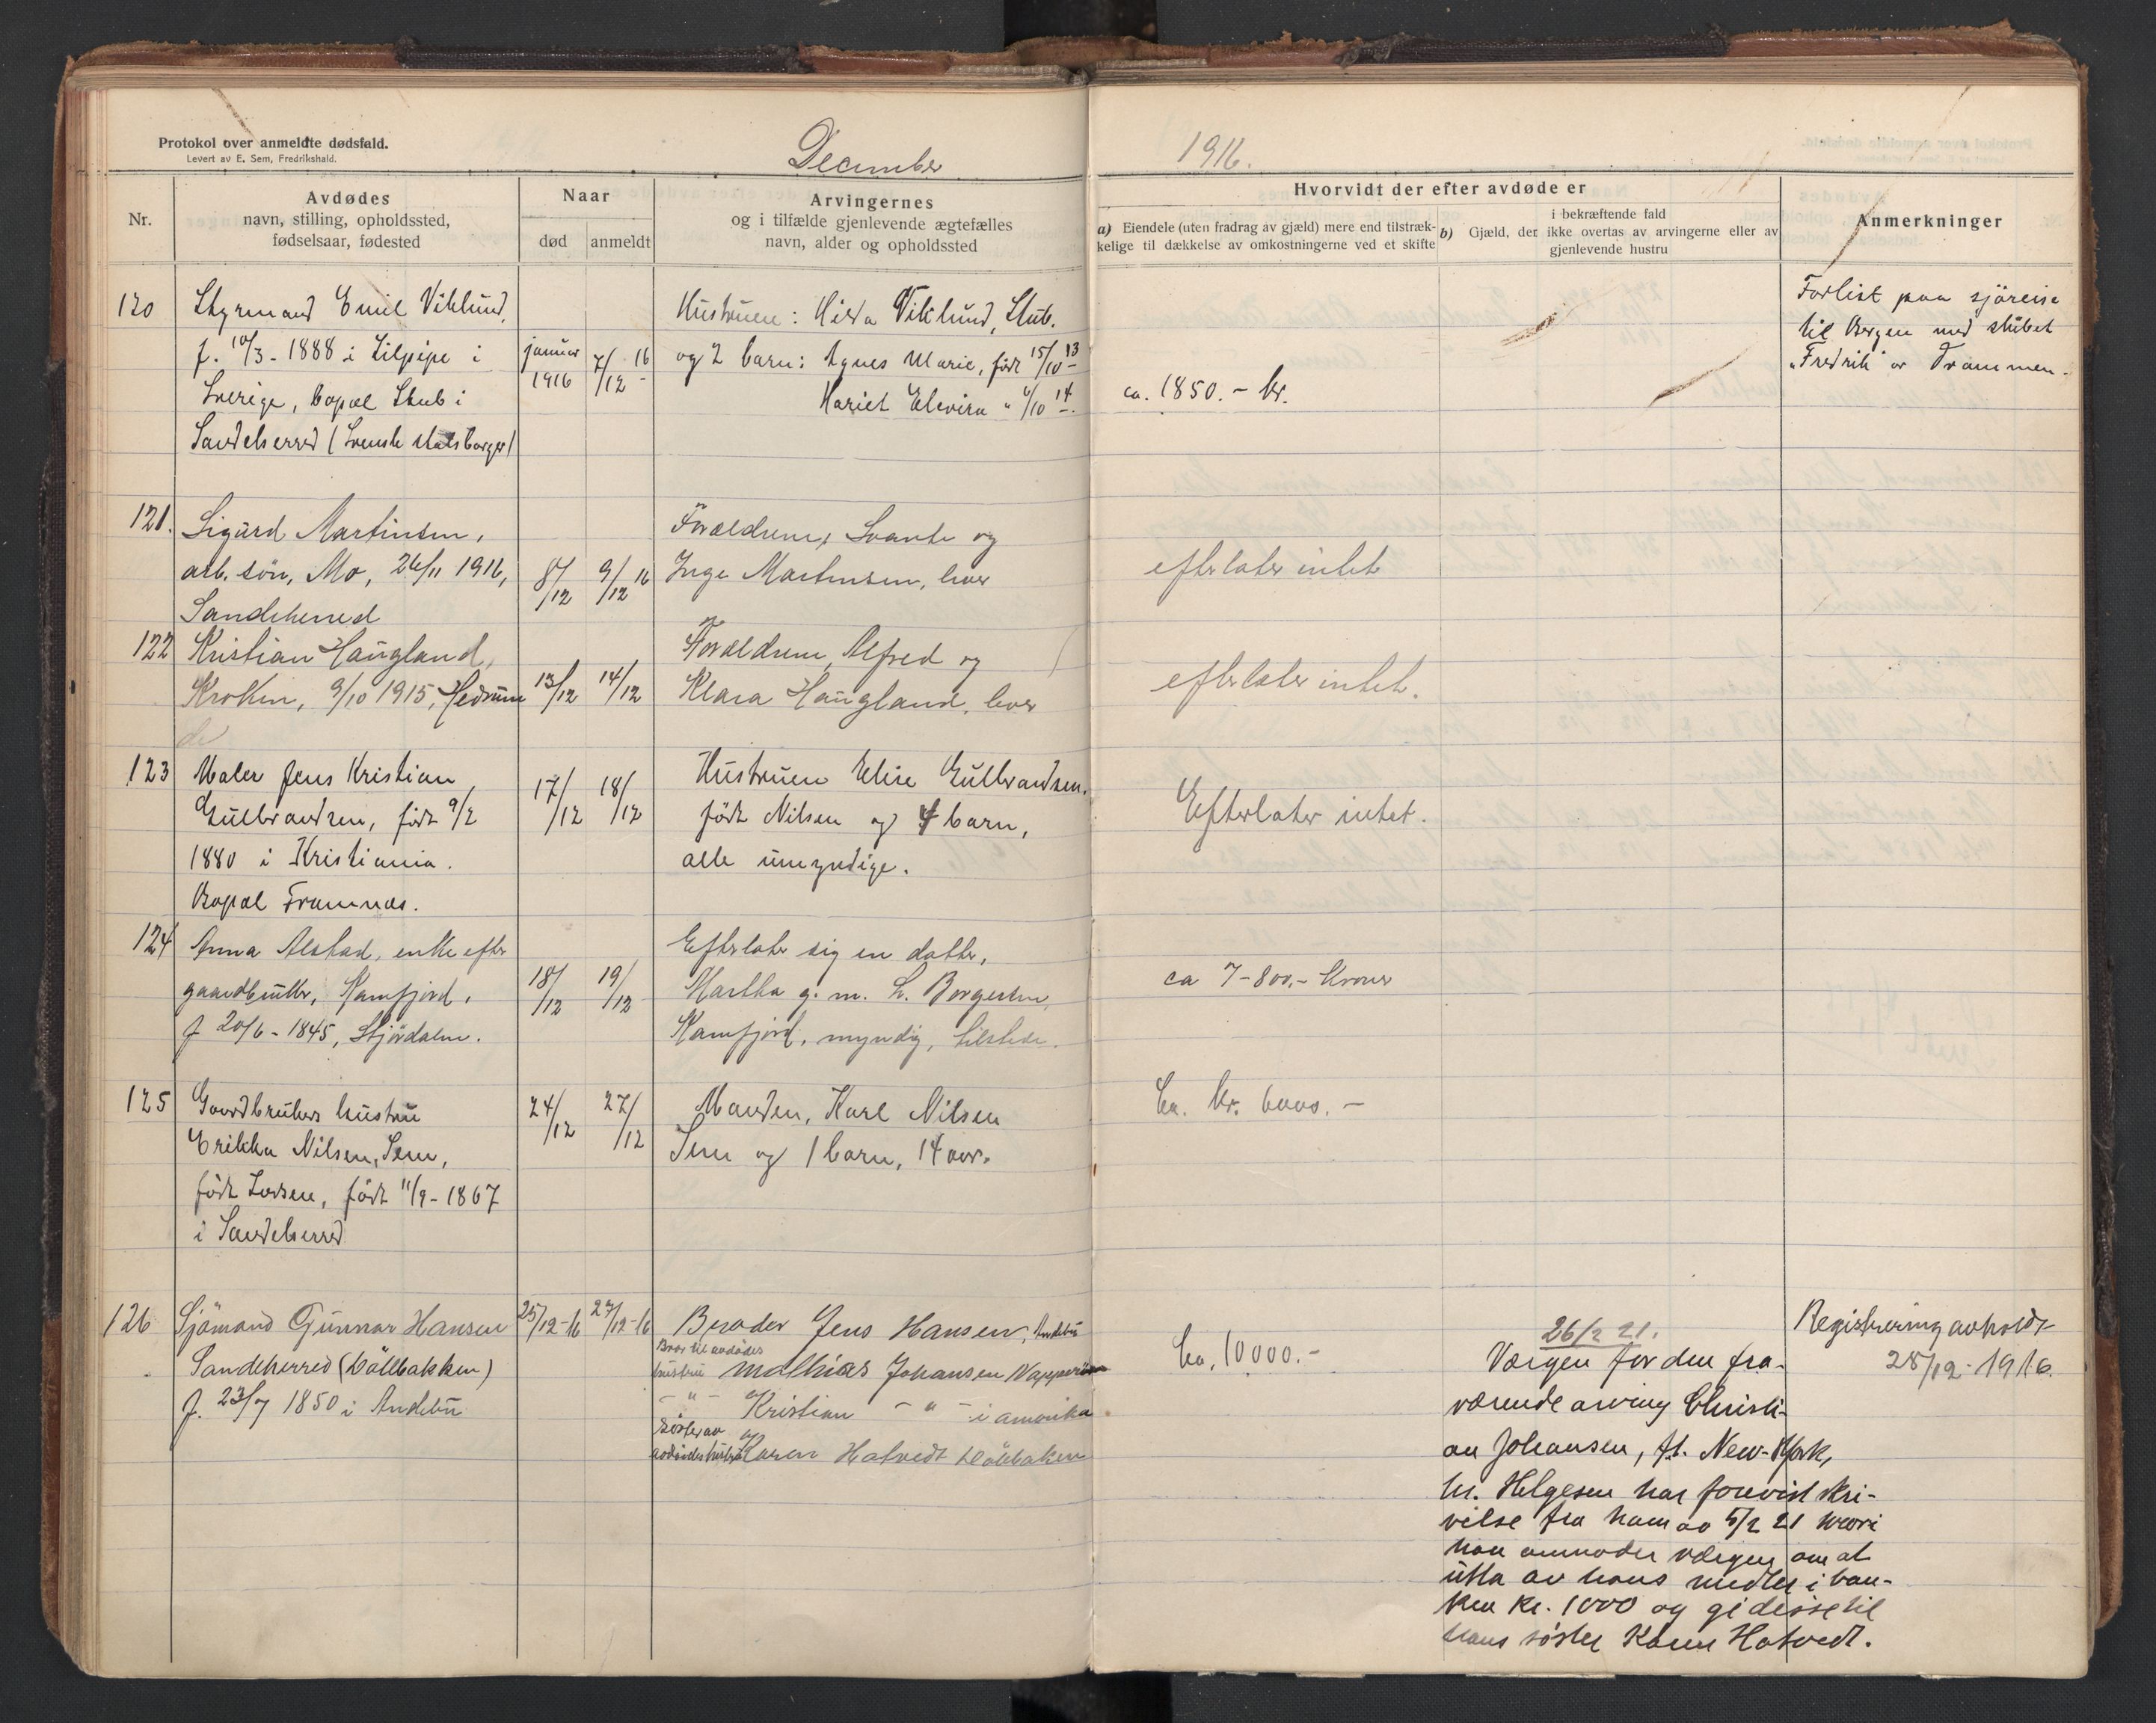 Protokol over anmeldte dødsfald.
Levert av E. Sem, Fredrikshald.
December
1916.
Nr.
Avdødes
navn, stilling, opholdssted,
fødselsaar, fødested
Naar
død
anmeldt
Arvingernes
og i tilfælde gjenlevende ægtefælles
navn, alder og opholdssted
Hvorvidt der efter avdøde er
a) Eiendele (uten fradrag av gjæld) mere end tilstræk-
kelige til dækkelse av omkostningerne ved et skifte
b) i bekræftende fald
Gjæld, der ikke overtas av arvingerne eller av
gjenlevende hustru
Anmerkninger
120
Styrmand Emil Viklund,
f. 10/3 - 1888 i Lilpipe i
Sverige, bopæl Stub i
Sandeherred (Svensk statsborger)
januar
1916
7/12 16
Hustruen: Hilda Viklund, Stub.
og 2 barn: Agnes Marie, født 15/10 13
Hariet Elevira " 4/10 14.
ca. 1850.- kr.
Forlist paa sjöreise
til Bergen med skibet
"Fredrik" av Drammen.
121.
Sigurd Martinsen,
arb. sön, Mo, 26/11 1916,
Sandeherred
8/12
9/12 16
Forældrene, Svante og
Inga Martinsen, lever
efterlater intet
122
Kristian Haugland,
Kroken, 9/10 1915, Hedrum
13/12
14/12
Forældrene, Alfred og
Klara Haugland, lever
efterlater intet.
123
Maler Jens Kristian
Gulbrandsen, født 9/2
1880 i Kristiania.
Bopæl Framnæs.
17/12
18/12
Hustruen Elise Gulbrandsen,
født Nilsen og 4 barn,
alle umyndige.
Efterlater intet.
124
Anna Alstad, enke efter
gaardbruker, Kamfjord,
f 20/6 - 1845, Stjördalen.
18/12
19/12
Efterlater sig en datter,
Martha g. m. L. Borgersen,
Kamfjord, myndig, tilstede.
ca 7-800,- kroner
125
Gaardbrukers hustru
Erikka Nilsen, Sem,
født Larsen, født 11/9 - 1867
i Sandeherred
24/12
27/12
Manden, Karl Nilsen
Sem og 1 barn, 14 aar.
Ca. kr. 6000.-
126
Sjömand Gunnar Hansen
Sandeherred (Dölebakken)
f. 23/7 1850 i Andebu
25/12-16
27/12-16
Broder Jens Hansen, Andebu
Bror til avdødes
hustru Mathias Johansen
- " - Kristian - " - i amerika
søster av
avdödes hustru Karen Hotvedt Dölebakken
Ca. 10000.-
26/2 21.
Værgen for den fra-
værende arving Christi-
an Johansen, f.t. New-York,
hr. Helgesen har forevist skri-
velse fra ham av 5/2 21 hvori
han anmoder værgen om at
utta av hans midler i ban-
ken kr. 1000 og gi disse til
hans søster Karen Hotvedt.
Registrering avholdt
28/12-1916.